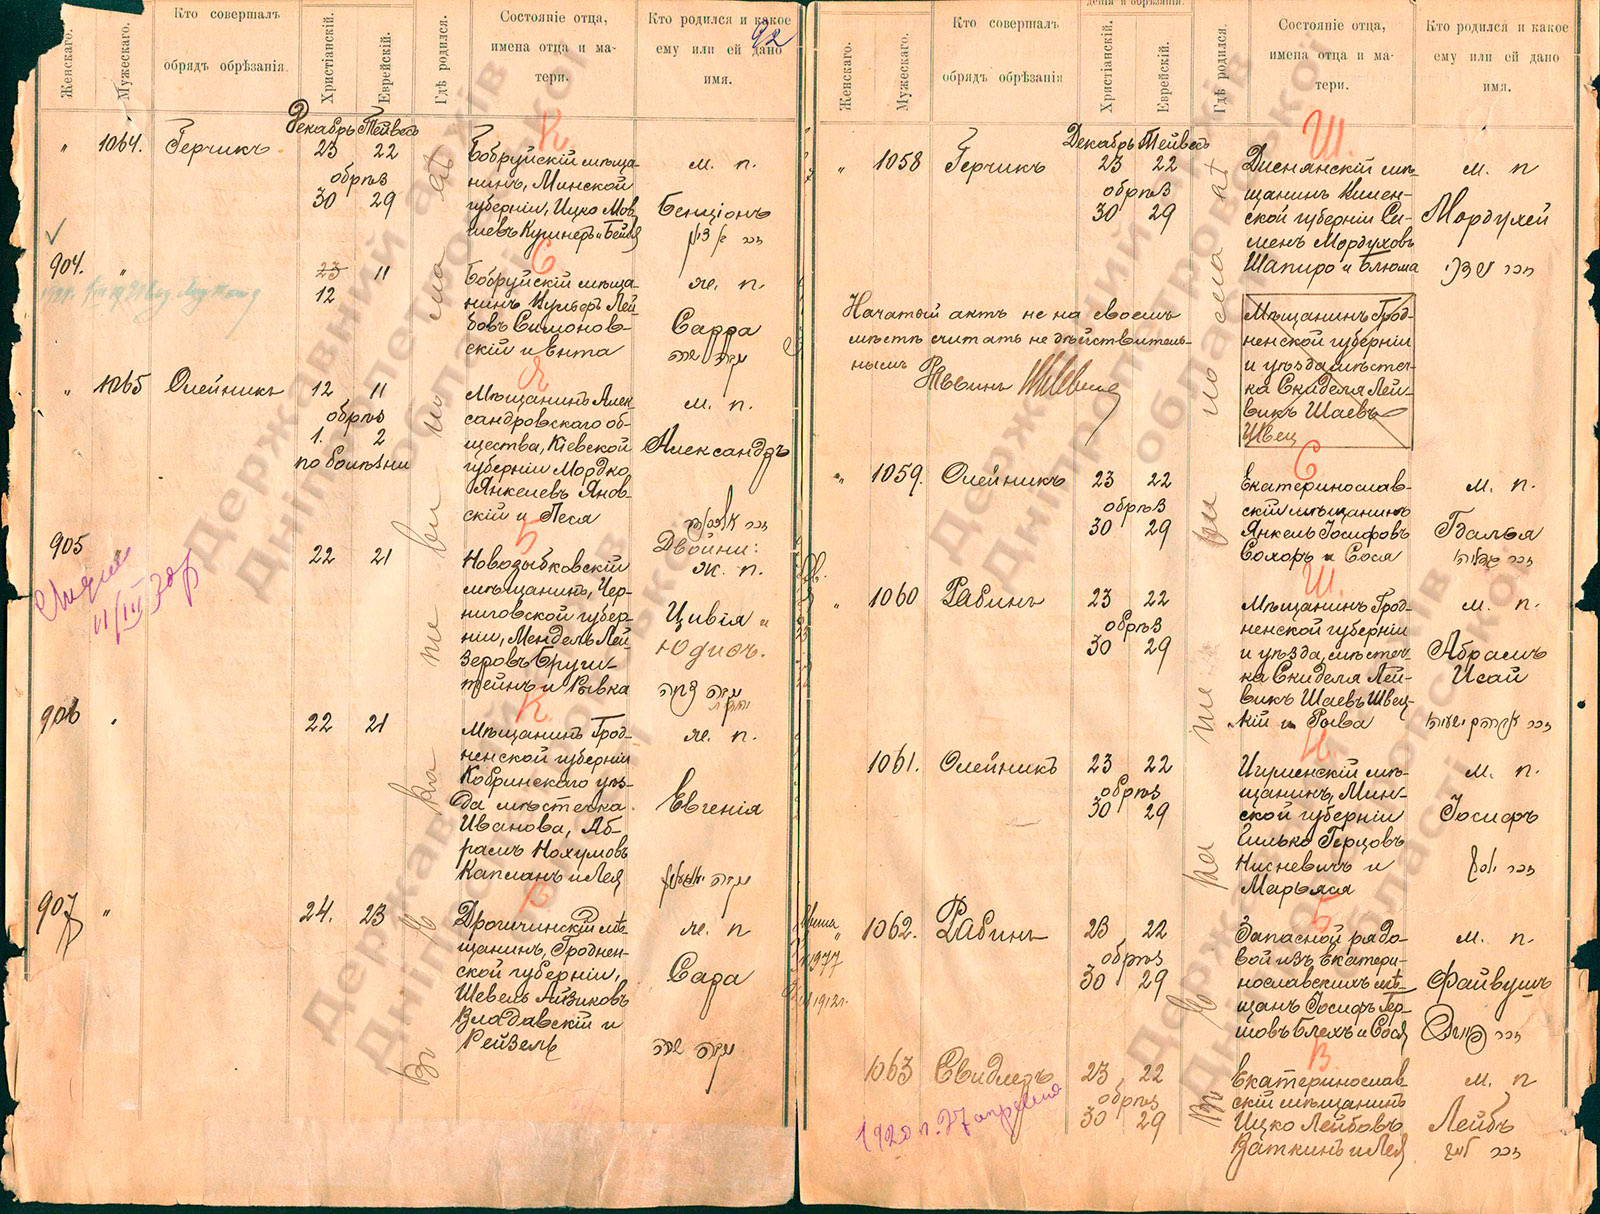 Женскаго.
Мужескаго.
Кто совершалъ
обрядъ обрѣзанія.
Христіанскій.
Еврейскій.
Гдѣ родился.
Состояніе отца,
имена отца и ма-
тери.
Кто родился и какое
ему или ей дано
имя.
92
Декабрь Тейвесъ
"
1064.
Герчикъ
23 22
обрѣз
30 29
К
Бобруйскій мѣща-
нинъ, Минской
губерніи, Ицко Мов-
шевъ Кушнеръ и Бейля
м. п.
Бенціонъ
904.
"
23 11
12
С
Бобруйскій мѣща-
нинъ Кушеръ Лей-
бовъ Симонов-
скій и Ента
ж. п.
Сарра
מרה שרה
"
1065
Олейникъ
12 11
обрѣз
1. 2
по болѣзни
Я
Мѣщанинъ Алек-
сандровскаго об-
щества, Кіевской
губерніи Мордко
Янкелевъ Янов-
скій и Песя
м. п.
Александръ
905
11/III 30
22 21
Б
Новозыбковскій
мѣщанинъ, Чер-
ниговской губер-
ніи, Мендель Лей-
зеровъ Бруш-
тейнъ и Рывка
Двойни:
ж. п.
Цивія и
Юдисъ.
906
"
22 21
К.
Мѣщанинъ Грод-
ненской губерніи
Кобринскаго уѣз-
да мѣстечка
Иванова, Аб-
рамъ Нохумовъ
Капланъ и Лея
ж. п.
Евгенія
907
"
24. 23
В
Дрогичинскій мѣ-
щанинъ, Гроднен-
ской губерніи,
Шевель Айзиковъ
Владавскій и
Рейзель
ж. п
Сара
Въ
Женскаго.
Мужескаго.
Кто совершалъ
обрядъ обрѣзанія
денія и обрѣзанія.
Христіанскій.
Еврейскій.
Гдѣ родился.
Состояніе отца,
имена отца и ма-
тери.
Кто родился и какое
ему или ей дано
имя.
Декабрь Тейвесъ
"
1058
Герчикъ
23 22
обрѣз
30 29
Ш.
Диснянскій мѣ-
щанинъ Вилен-
ской губерніи Си-
менъ Мордуховъ
Шапиро и Блюма
м. п
Мордухей
Начатый актъ не на своемъ
мѣстѣ считать недѣйствитель-
нымъ
Раввинъ
Мѣщанинъ Грод-
ненской губерніи
и уѣзда, мѣстеч-
ка Скиделя Лей-
викъ Шаевъ
Швец
"
1059.
Олейникъ
23 22
обрѣз
30 29
С
Екатеринослав-
скій мѣщанинъ
Янкель Іосифовъ
Сохоръ и Сося
м. п.
Гдалья
"
1060
Рабинъ
23 22
обрѣз
30 29
Ш.
Мѣщанинъ Грод-
ненской губерніи
и уѣзда, мѣстеч-
ка Скиделя Лей-
викъ Шаевъ Швец-
кій и Рива
м. п.
Абрамъ
Исай
1061.
Олейникъ
23 22
обрѣз
30 29
Н
Игуменскій мѣ-
щанинъ, Мин-
ской губерніи
Гилько Герцовъ
Нисневичъ и
Марьяся
м. п.
Іосифъ
"
1062.
Рабинъ
23 22
обрѣз
30 29
Б
Запасной рядо-
вой изъ Екатери-
нославскихъ мѣ-
щанъ Іосифъ Гер-
шовъ Блехъ и Сося
м. п.
Файвушъ
1977
1912г.
1063
Свидлеръ
1920 г. 27 апрѣля
23 22
обрѣз
30 29
В.
Екатеринослав-
скій мѣщанинъ
Ицко Лейбовъ
Ваткинъ и Лея
м. п
Лейбъ
Въ
Державний архів
Дніпропетровської
області